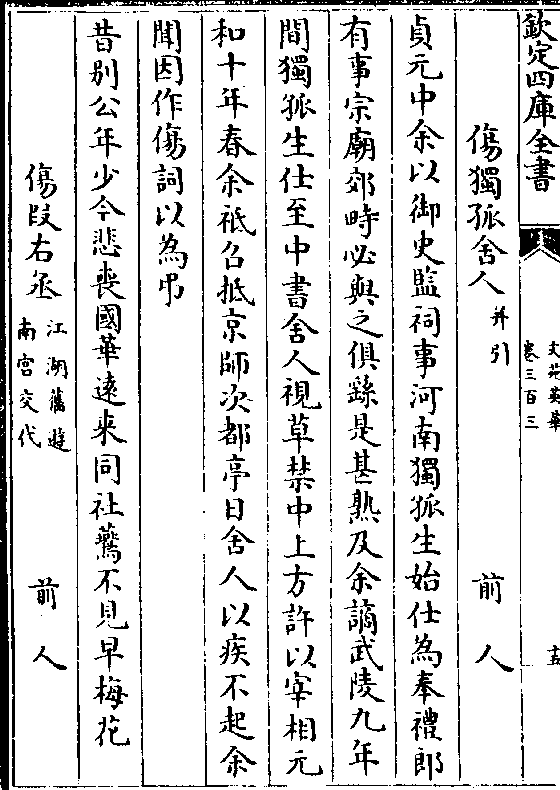 欽定四庫全書
文苑英華
卷三百三
十五
傷獨孤舍人 并引 前人
貞元中余以御史監祠事河南獨孤生始仕為奉禮郎
有事宗廟郊畤必與之俱繇是甚熟及余謫武陵九年
間獨孤生仕至中書舍人視草禁中上方許以宰相元
和十年春余祇召抵京師次都亭日舍人以疾不起余
聞因作傷詞以為弔
昔别公年少今悲喪國華遠来同社鷰不見早梅花
傷段右丞 江湖舊遊 南宫交代 前人